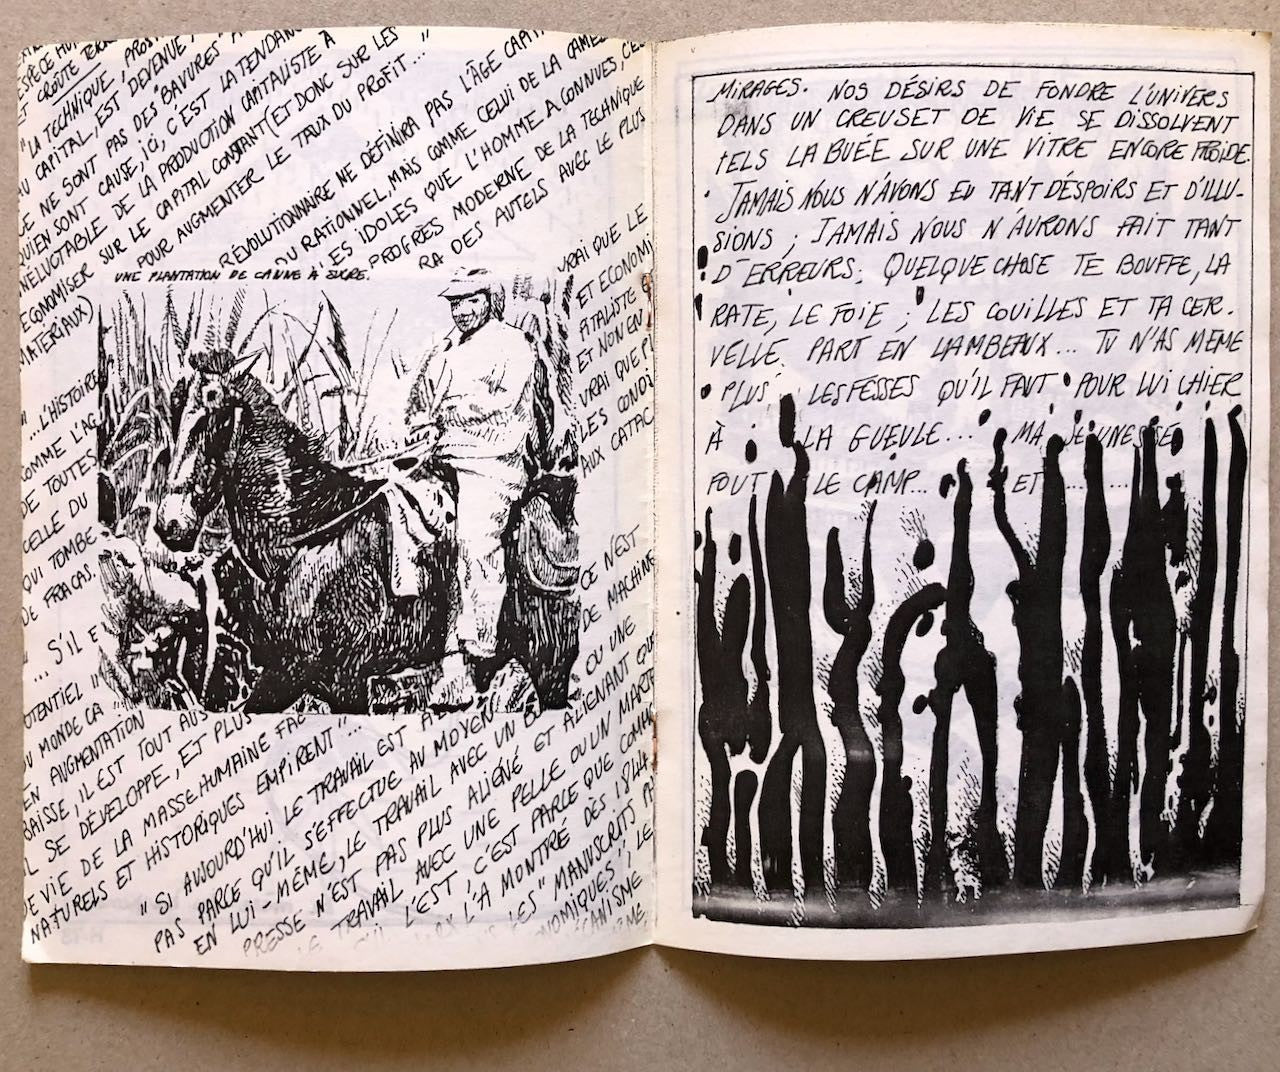 ESPÈCE HU
ET CROÛTE TERR
"LA TECHNIQUE, PROS
AU CAPITAL, EST DEVENUE
NE SONT PAS DES "BAVURES"
QUI EN SONT CAUSE, ICI, C'EST LA TENDAN
INÉLUCTABLE DE LA PRODUCTION CAPITALISTE À
ECONOMISER SUR LE CAPITAL CONSTANT (ET DONC SUR LES
MATERIAUX) POUR AUGMENTER LE TAUX DU PROFIT..."
RÉVOLUTIONNAIRE NE DÉFINIRA PAS L'ÂGE CAPIT
DU RATIONNEL, MAIS COMME CELUI DE LA CAMEL
LES IDOLES QUE L'HOMME A CONNUES, CE
PROGRÈS MODERNE DE LA TECHNIQUE
RA DES AUTELS AVEC LE PLUS
UNE PLANTATION DE CANNE À SUCRE.
"...L'HISTOIRE
COMME L'AG
DE TOUTES
CELLE DU
QUI TOMBE
DE FRACAS.
VRAI QUE LE
ET ECONOMI
PITALISTE
ET NON EN
VRAI QUE PL
LES CONDI
AUX CATAC
"... S'IL E
POTENTIEL"
DU MONDE CA
EN AUGMENTATION
BAISSE, IL EST TOUT AUS
IL SE DÉVELOPPE, ET PLUS
DE VIE DE LA MASSE HUMAINE FAC
NATURELS ET HISTORIQUES EMPIRENT"...
"SI AUJOURD'HUI LE TRAVAIL EST A
PAS PARCE QU'IL S'EFFECTUE AU MOYEN
CE N'EST
DE MACHINE
EN LUI-MÊME, LE TRAVAIL AVEC UN
OU UNE
PRESSE N'EST PAS PLUS ALIÉNÉ ET ALIENANT QUE
LE TRAVAIL AVEC UNE PELLE OU UN MARTE
L'EST, C'EST PARCE QUE COMM
L'A MONTRÉ DÈS 1844
LES "MANUSCRITS
NOMIQUES"; LE
CANISME
MIRAGES. NOS DÉSIRS DE FONDRE L'UNIVERS
DANS UN CREUSET DE VIE SE DISSOLVENT
TELS LA BUÉE SUR UNE VITRE ENCORE FROIDE.
JAMAIS NOUS N'AVONS EU TANT DÉSPOIRS ET D'ILLU-
SIONS ; JAMAIS NOUS N'AURONS FAIT TANT
D'ERREURS. QUELQUE CHOSE TE BOUFFE, LA
RATE, LE FOIE ; LES COUILLES ET TA CER-
VELLE PART EN LAMBEAUX... TU N'AS MEME
PLUS LES FESSES QU'IL FAUT POUR LUI CHIER
À LA GUEULE... MA JEUNESSE
FOUT LE CAMP... ET .......